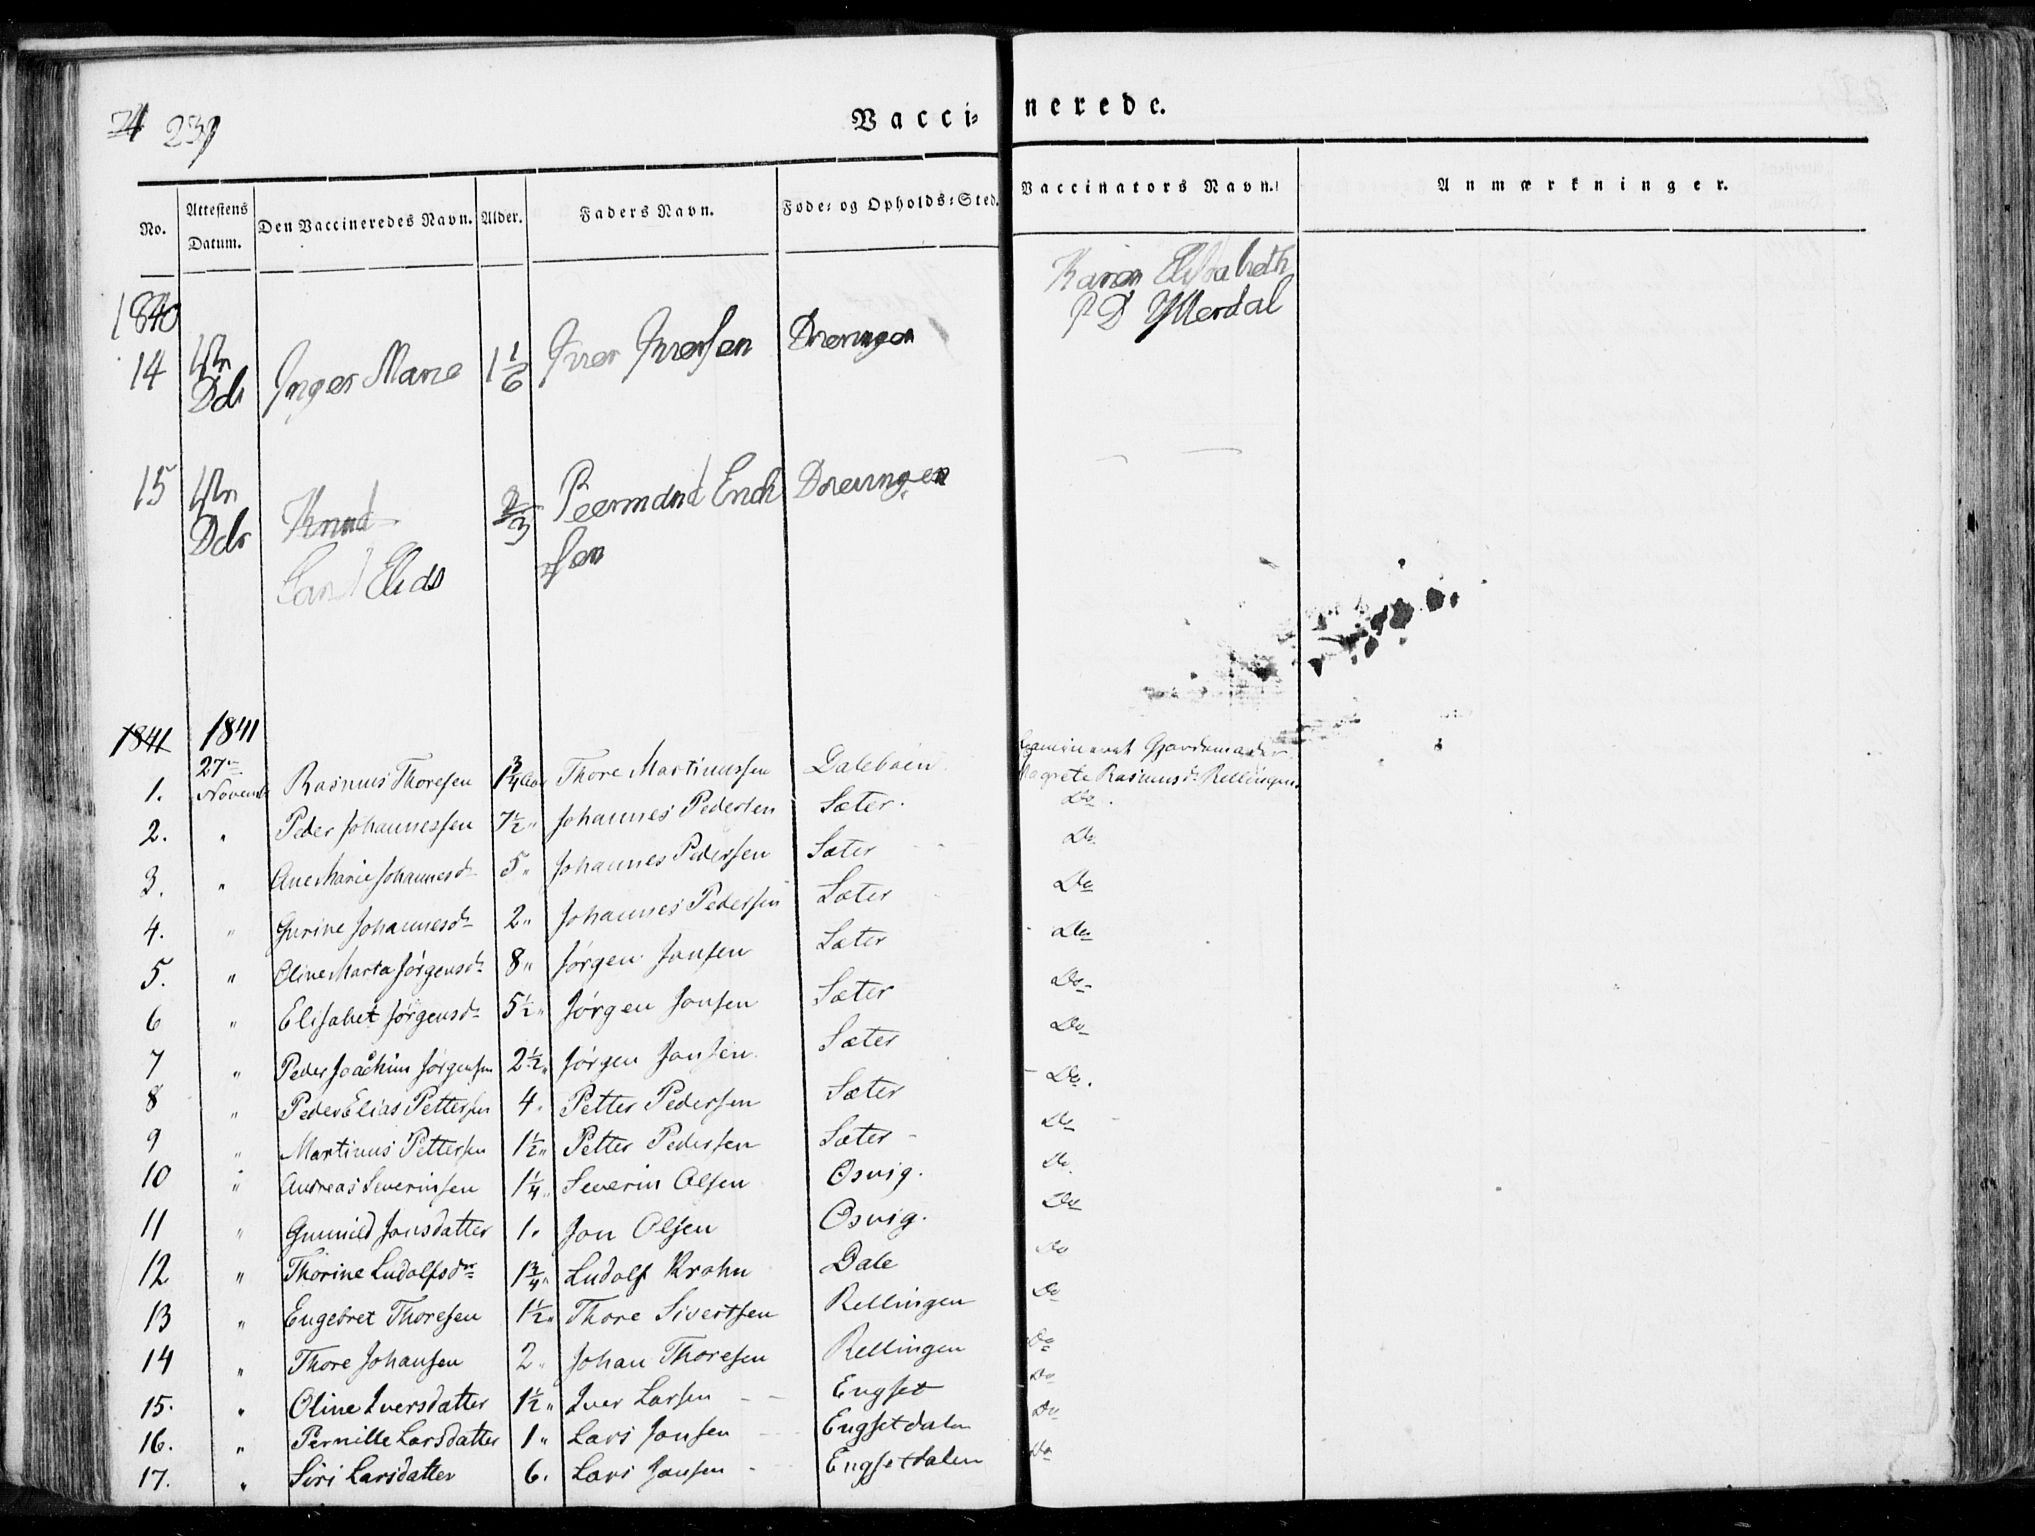 239
Vacci- nerede.
No. Attestens Datum. Den Vaccineredes Navn. Alder. Faders Navn. Føde- og Opholds-Sted. Vaccinators Navn. Anmærkninger.
Karen Elisabeth
PD Ytterdal
1840
14 Dcbr Inger Marie 1 1/6 Iver Iversen
15 Dcbr Knud 2/3 Peermand Erich
sen
1841 1841
27de Examineret Gjordemoder
1. Novemb Rasmus Thoresen 1 3/4 Thore Martinussen Daleboen Magrete Rasmusd. Rellingen
2. " Peder Johannessen 7½ " Johannes Pedersen Sæter. Do.
3. " Ane Marie Johannesd 5 " Johannes Pedersen Sæter Do.
4. " Gurine Johannesd 2 " Johannes Pedersen Sæter Do
5. " Oline Marta Jørgensd 8 " Jørgen Jonsen Sæter Do
6 " Elisabet Jørgensd 5½ " Jørgen Jonsen Sæter Do
7 " Peder Joachim Jørgensen 2½ " Jørgen Jonsen Sæter Do
8 " Peder Elias Pettersen 4 " Petter Pedersen Sæter Do.
9 " Martinus Pettersen 1½ " Petter Pedersen Sæter Do
10 " Andreas Severinsen 1¼ " Severin Olsen Osvig. Do.
11 " Gunnild Jonsdatter 1 " Jon Olsen Osvig. Do
12 " Thorine Ludolfsdr 1¾ " Ludolf Krohn Dale Do
13 " Engebret Thoresen 1½ " Thore Sivertsen Rellingen Do
14 " Thore Johansen 2 " Johan Thoresen Rellingen Do
15. " Oline Iversdatter 1½ " Iver Larsen Engset Do
16. " Pernille Larsdatter 1 " Lars Jonsen Engsetdalen Do
17. " Siri Larsdatter 6 . Lars Jonsen Engsetdalen Do